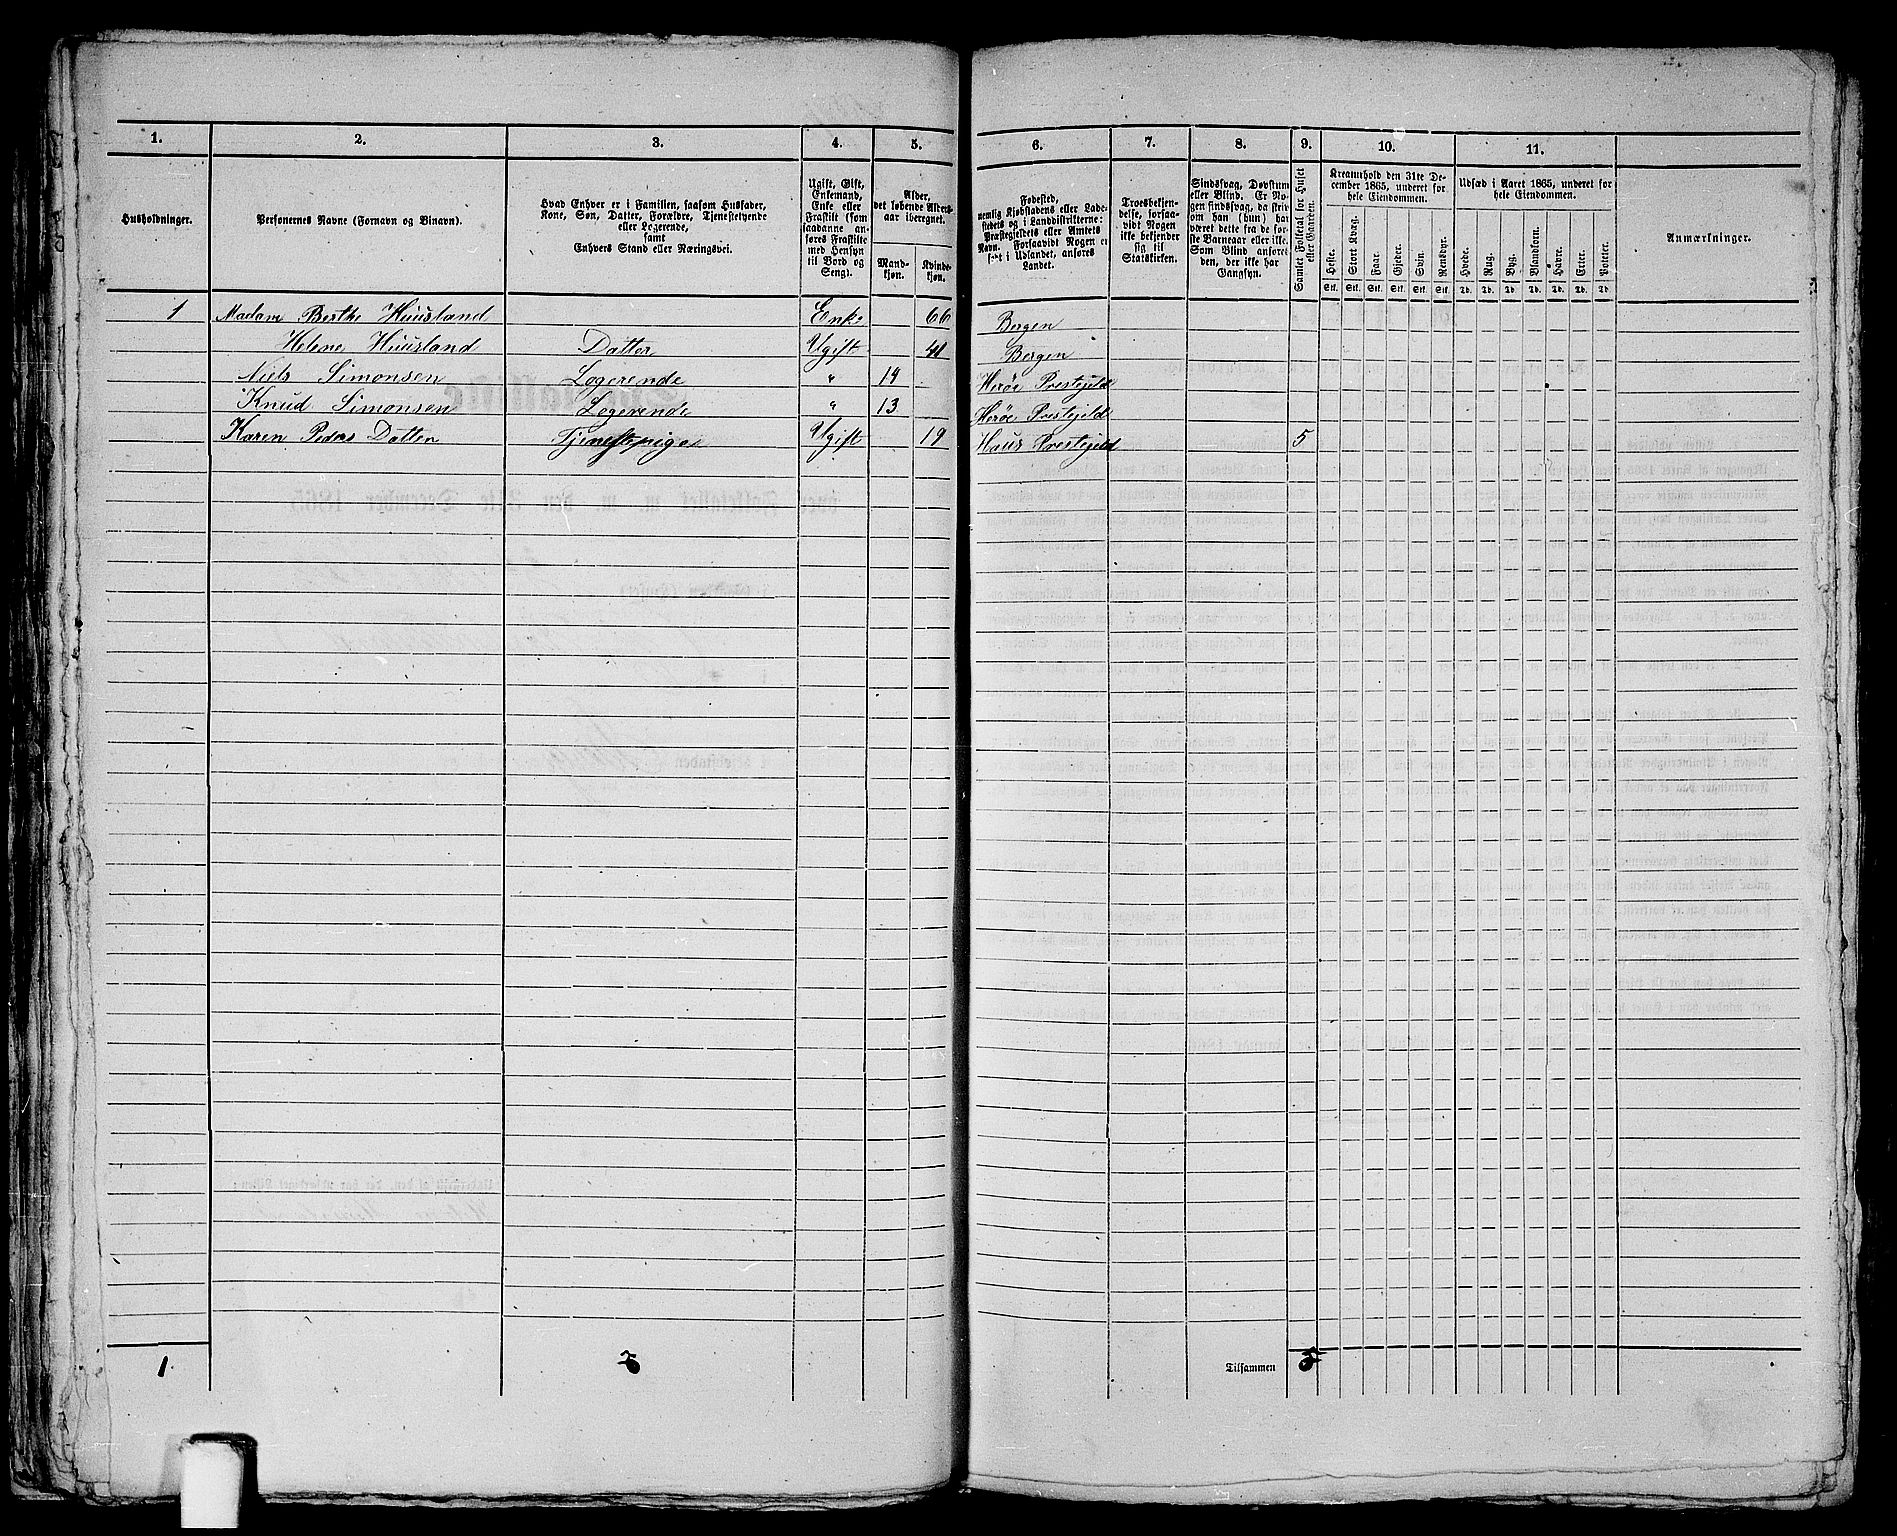 1. 2. 3. 4. 5. 6. 7. 8. 9. 10. 11.
Husholdninger.
Personernes Navne (Fornavn og Binavn).
Hvad Enhver er i Familien, saasom Husfader,
Kone, Søn, Datter, Forældre, Tjenestetyende
eller Logerende,
samt
Enhvers Stand eller Næringsvei.
Ugift, Gift,
Enkemand,
Enke eller
Fraskilt (som
saadanne an-
føres Fraskilte
med Hensyn
til Bord og
Seng).
Alder,
det løbende Alders-
aar iberegnet.
Mand-
kjøn.
Kvinde-
kjøn.
Fødested,
nemlig Kjøbstadens eller Lade-
stedets og i Landdistrikterne:
Præstegjeldets eller Amtets
Navn. Forsaavidt Nogen er
født i Udlandet, anføres
Landet.
Troesbekjen-
delse, forsaa-
vidt Nogen
ikke bekjender
sig til
Statskirken.
Sindssvag, Døvstum
eller Blind. Er No-
gen sindssvag, da skriv
om han (hun) har
været dette fra de for-
ste Barneaar eller ikke.
Som Blind anføres
den, der ikke har
Gangsyn.
Samlet Folketal for Huset
eller Gaarden.
Kreaturhold den 31te De-
cember 1865, underet for
hele Eiendommen.
Heste. Stort Kvæg. Faar. Gjeder. Svin. Rensdyr.
Stk. Stk. Stk. Stk. Stk. Stk.
Udsæd i Aaret 1865, underet for
hele Eiendommen.
Hvede. Rug. Byg. Blandkorn. Havre. Erter. Poteter.
Td. Td. Td. Td. Td. Td. Td.
Anmærkninger.
1 Madam Berthe Huusland Enke 66 Bergen
Helene Huusland Datter Ugift 41 Bergen
Niels Simonsen Logerende " 14 Herøe Prestejeld
Knud Simonsen Logerende " 13 Herøe Prestejeld
Karen Peders Datter Tjenestepige Ugift 19 Haus Prestejeld 5
1. Tilsammen